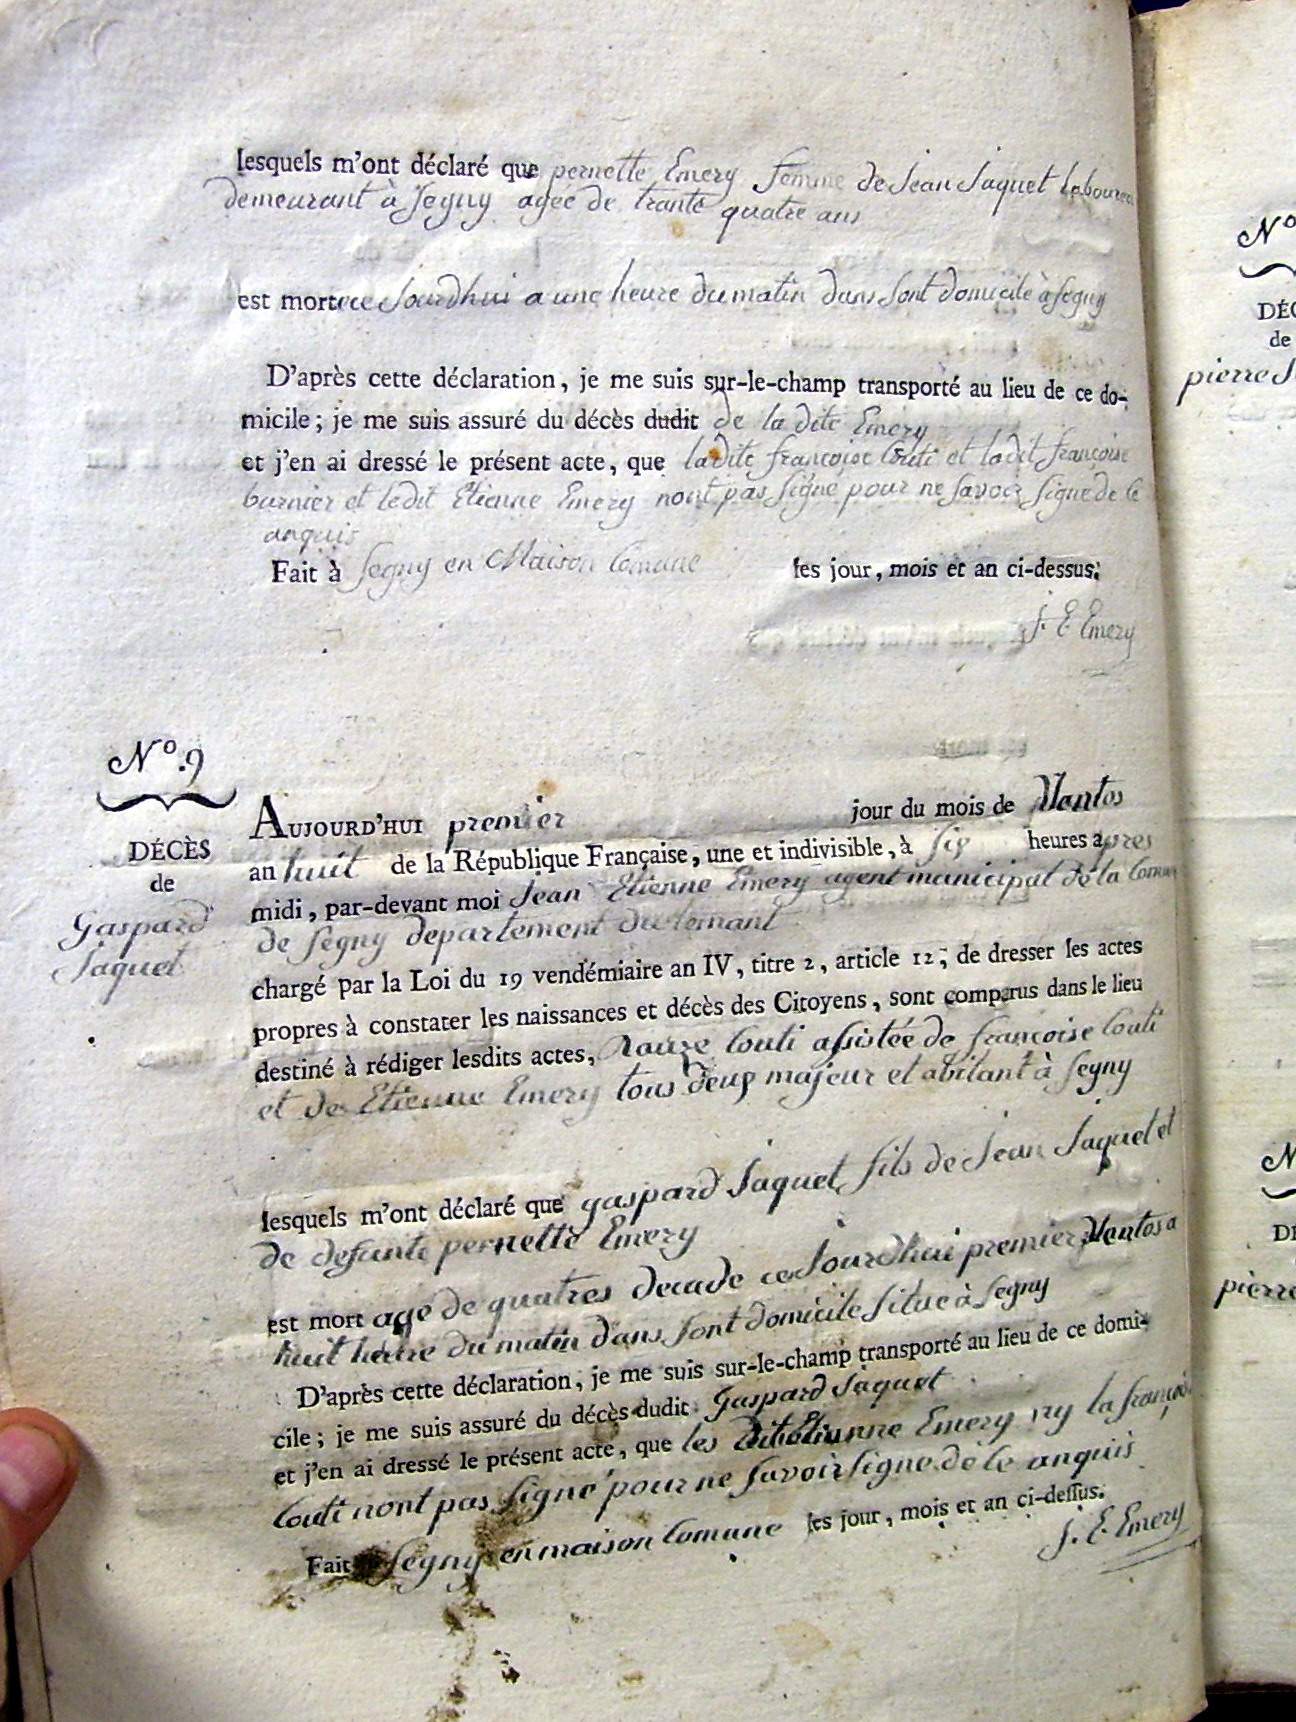 lesquels m'ont déclaré que pernette Emery femme de Jean Jaquet Laboureu
demeurant à Segny agée de trante quatre ans
est morte ce Jourdhui a une heure du matin dans sont domicile à Segny
D'après cette déclaration, je me suis sur-le-champ transporté au lieu de ce do-
micile; je me suis assuré du décès dudit de la dite Emery
et j'en ai dressé le présent acte, que ladite francoise Couti et ladit françoise
burnier et ledit Etienne Emery nont pas signé pour ne savoir signe de le
anquis
Fait à Segny en Maison Comune les jour, mois et an ci-dessus.
J. E Emery
N.º 9
DÉCÈS
de
Gaspard
Jaquet
AUJOURD'HUI premier jour du mois de Ventos
an huit de la République Française, une et indivisible, à six heures apres
midi, par-devant moi Jean Etienne Emery agent municipal de la Comun
de Segny departement du lemant
chargé par la Loi du 19 vendémiaire an IV, titre 2, article 12, de dresser les actes
propres à constater les naissances et décès des Citoyens, sont comparus dans le lieu
destiné à rédiger lesdits actes, Couti asistée de françoise Couti
et de Etienne Emery tous deux majeur et abitant à Segny
lesquels m'ont déclaré que gaspard Jaquet fils de Jean Jaquet et
de defunte pernette Emery
est mort agé de quatres decade ce Jourdhui premier Ventos a
huit heure du matin dans sont domicile situe à Segny
D'après cette déclaration, je me suis sur-le-champ transporté au lieu de ce domi-
cile; je me suis assuré du décès dudit Gaspard Jaquet
et j'en ai dressé le présent acte, que les Emery ny la françois
Couti nont pas signé pour ne savoir signe de le anquis
Fait Segny en maison Comune les jour, mois et an ci-dessus.
J. E. Emery
Nº
DÉC
de
pierre J
N
DÉ
pierre